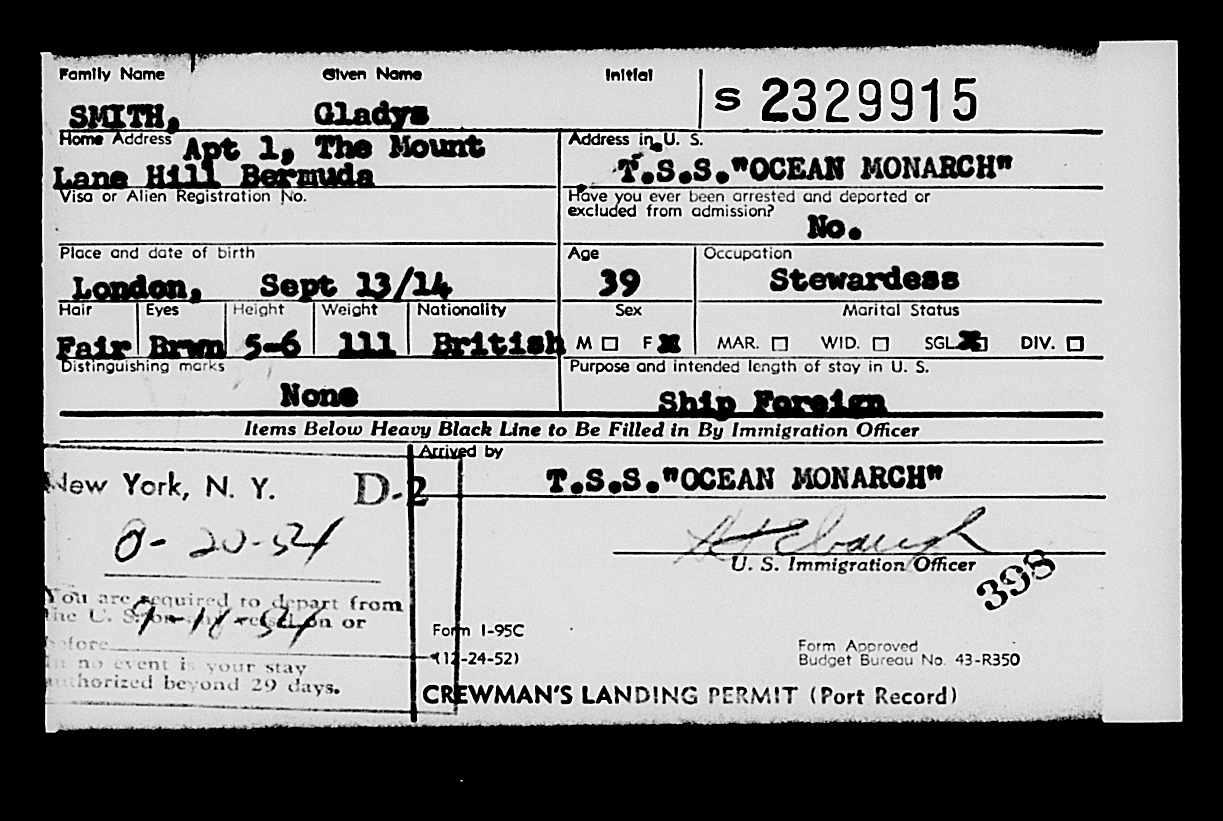 Family Name Given Name Initial
SMITH, Gladys
S 2329915
Home Address Apt 1, The Mount
Lane Hill Bermuda
Address in U. S.
T.S.S."OCEAN MONARCH"
Visa or Alien Registration No.
Have you ever been arrested and deported or
excluded from admission?
No.
Place and date of birth
London, Sept 13/14
Age
39
Occupation
Stewardess
Hair Eyes Height Weight Nationality
Fair Brwn 5-6 111 British
Sex
M F X
Marital Status
MAR. WID. SGL. X DIV.
Distinguishing marks
None
Purpose and intended length of stay in U. S.
Ship Foreign
Items Below Heavy Black Line to Be Filled in By Immigration Officer
New York, N. Y. D-2
8-20-54
You are required to depart from
the U. S. on or
before
In no event is your stay
authorized beyond 29 days.
Arrived by
T.S.S."OCEAN MONARCH"
U. S. Immigration Officer
398
Form I-95C
(12-24-52)
Form Approved
Budget Bureau No. 43-R350
CREWMAN'S LANDING PERMIT (Port Record)